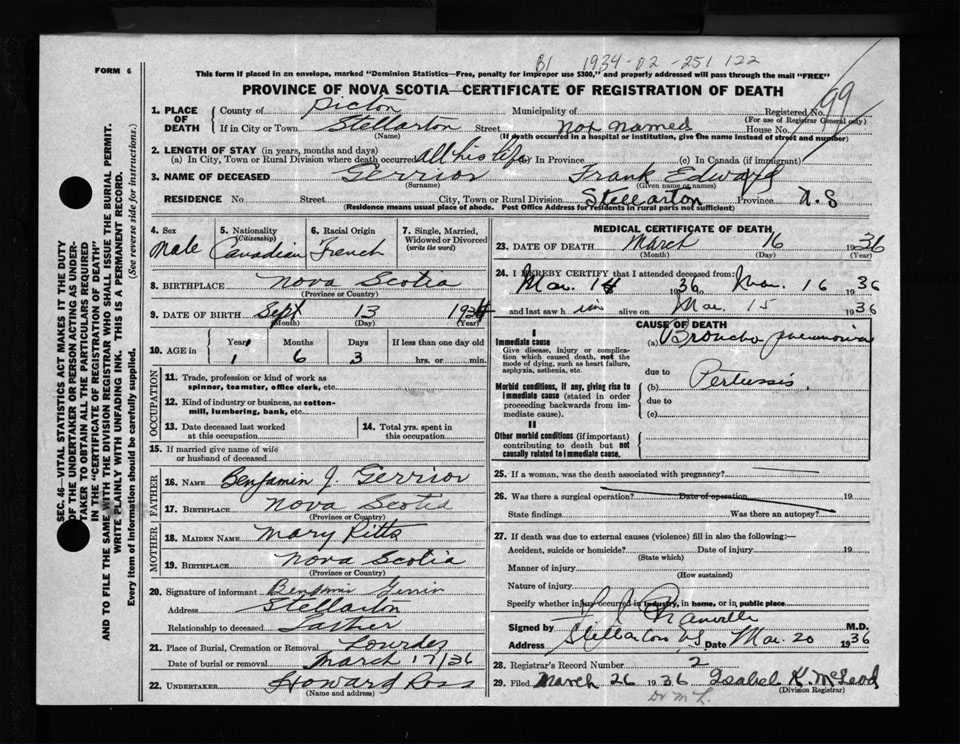 FORM 6
B1 1934-02-251122
This form if placed in an envelope, marked "Dominion Statistics—Free, penalty for improper use $300," and properly addressed will pass through the mail "FREE"
PROVINCE OF NOVA SCOTIA—CERTIFICATE OF REGISTRATION OF DEATH
99
1. PLACE OF DEATH County of Pictou Municipality of Registered No. (For use of Registrar General only)
If in City or Town Stellarton (Name) Street Not named House No.
(If death occurred in a hospital or institution, give the name instead of street and number)
2. LENGTH OF STAY (in years, months and days)
(a) In City, Town or Rural Division where death occurred All his life (b) In Province (c) In Canada (if immigrant)
3. NAME OF DECEASED Gerrior (Surname) Frank Edward (Given name or names)
RESIDENCE No. Street City, Town or Rural Division Stellarton Province N.S
(Residence means usual place of abode. Post Office Address for residents in rural parts not sufficient)
4. Sex Male
5. Nationality (Citizenship) Canadian
6. Racial Origin French
7. Single, Married, Widowed or Divorced (write the word)
8. BIRTHPLACE Nova Scotia
(Province or Country)
9. DATE OF BIRTH Sept 13 1934
(Month) (Day) (Year)
10. AGE in Years Months Days If less than one day old
1 6 3 hrs. or min.
OCCUPATION
11. Trade, profession or kind of work as spinner, teamster, office clerk, etc.
12. Kind of industry or business, as cotton-mill, lumbering, bank, etc.
13. Date deceased last worked at this occupation
14. Total yrs. spent in this occupation
15. If married give name of wife or husband of deceased
FATHER
16. NAME Benjamin J. Gerrior
17. BIRTHPLACE Nova Scotia
(Province or Country)
MOTHER
18. MAIDEN NAME Mary Pitts
19. BIRTHPLACE Nova Scotia
(Province or Country)
20. Signature of informant Benjamin Gerrior
Address Stellarton
Relationship to deceased Father
21. Place of Burial, Cremation or Removal Lourdes
Date of burial or removal March 17/36
22. UNDERTAKER Howard Ross
(Name and address)
MEDICAL CERTIFICATE OF DEATH
23. DATE OF DEATH March 16 1936
(Month) (Day) (Year)
24. I HEREBY CERTIFY that I attended deceased from:
Mar. 14 1936 to Mar. 16 1936
and last saw h im alive on Mar 15 1936
CAUSE OF DEATH
I
Immediate cause (a) Broncho pneumonia
Give disease, injury or complication which caused death, not the mode of dying, such as heart failure, asphyxia, asthenia, etc.
due to
Morbid conditions, if any, giving rise to immediate cause (stated in order proceeding backwards from immediate cause).
(b) Pertussis
due to
(c)
II
Other morbid conditions (if important) contributing to death but not causally related to immediate cause.
25. If a woman, was the death associated with pregnancy?
26. Was there a surgical operation? Date of operation 19
State findings Was there an autopsy?
27. If death was due to external causes (violence) fill in also the following:—
Accident, suicide or homicide? Date of injury 19
(State which)
Manner of injury
(How sustained)
Nature of injury
Specify whether injury occurred in industry, in home, or in public place
Signed by M.D.
Address Stellarton N.S Date Mar. 20 1936
28. Registrar's Record Number 2
29. Filed March 26 1936 Isabel K. McLeod
(Division Registrar)
Dr McL.
SEC. 46—VITAL STATISTICS ACT MAKES IT THE DUTY
OF THE UNDERTAKER OR PERSON ACTING AS UNDER-
TAKER TO OBTAIN ALL THE PARTICULARS REQUIRED
IN THE "CERTIFICATE OF REGISTRATION OF DEATH"
AND TO FILE THE SAME WITH THE DIVISION REGISTRAR WHO SHALL ISSUE THE BURIAL PERMIT.
WRITE PLAINLY WITH UNFADING INK. THIS IS A PERMANENT RECORD.
Every item of information should be carefully supplied. (See reverse side for instructions.)